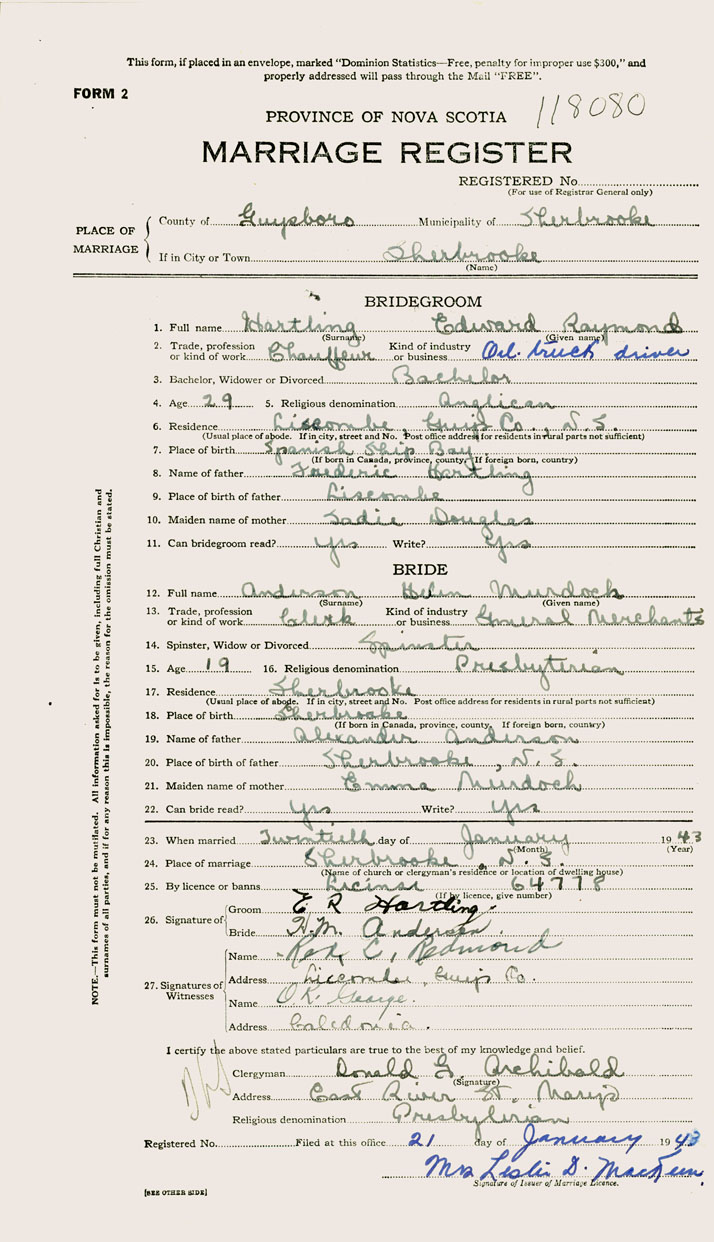 This form, if placed in an envelope, marked “Dominion Statistics—Free, penalty for improper use $300,” and
properly addressed will pass through the Mail “FREE”.
FORM 2
118080
PROVINCE OF NOVA SCOTIA
MARRIAGE REGISTER
REGISTERED No.
(For use of Registrar General only)
PLACE OF MARRIAGE
County of Guysboro Municipality of Sherbrooke
If in City or Town Sherbrooke
(Name)
BRIDEGROOM
1. Full name Hartling Edward Raymond
(Surname) (Given name)
2. Trade, profession or kind of work Chauffeur Kind of industry or business Oil truck driver
3. Bachelor, Widower or Divorced Bachelor
4. Age 29 5. Religious denomination Anglican
6. Residence Liscombe, Guys Co., N.S.
(Usual place of abode. If in city, street and No. Post office address for residents in rural parts not sufficient)
7. Place of birth Spanish Ship Bay
(If born in Canada, province, county. If foreign born, country)
8. Name of father Frederic Hartling
9. Place of birth of father Liscombe
10. Maiden name of mother Sadie Douglas
11. Can bridegroom read? Yes Write? Yes
BRIDE
12. Full name Anderson Helen Murdock
(Surname) (Given name)
13. Trade, profession or kind of work Clerk Kind of industry or business General Merchants
14. Spinster, Widow or Divorced Spinster
15. Age 19 16. Religious denomination Presbyterian
17. Residence Sherbrooke
(Usual place of abode. If in city, street and No. Post office address for residents in rural parts not sufficient)
18. Place of birth Sherbrooke
(If born in Canada, province, county. If foreign born, country)
19. Name of father Alexander Anderson
20. Place of birth of father Sherbrooke, N.S.
21. Maiden name of mother Emma Murdoch
22. Can bride read? Yes Write? Yes
23. When married Twentieth day of January 1943
(Month) (Year)
24. Place of marriage Sherbrooke, N.S.
(Name of church or clergyman's residence or location of dwelling house)
25. By licence or banns License 64778
(If by licence, give number)
26. Signature of
Groom E R Hartling.
Bride H.M. Anderson.
27. Signatures of Witnesses
Name C. Redmond
Address Liscombe, Guys Co.
Name O.K. George.
Address Caledonia.
I certify the above stated particulars are true to the best of my knowledge and belief.
Clergyman Donald G. Archibald
(Signature)
Address East River St. Marys
Religious denomination Presbyterian
Registered No. Filed at this office 21 day of January 1943
Mrs Leslie D. MacKeen
Signature of Issuer of Marriage Licence.
[SEE OTHER SIDE]
NOTE.—This form must not be mutilated. All information asked for is to be given, including full Christian and
surnames of all parties, and if for any reason this is impossible, the reason for the omission must be stated.